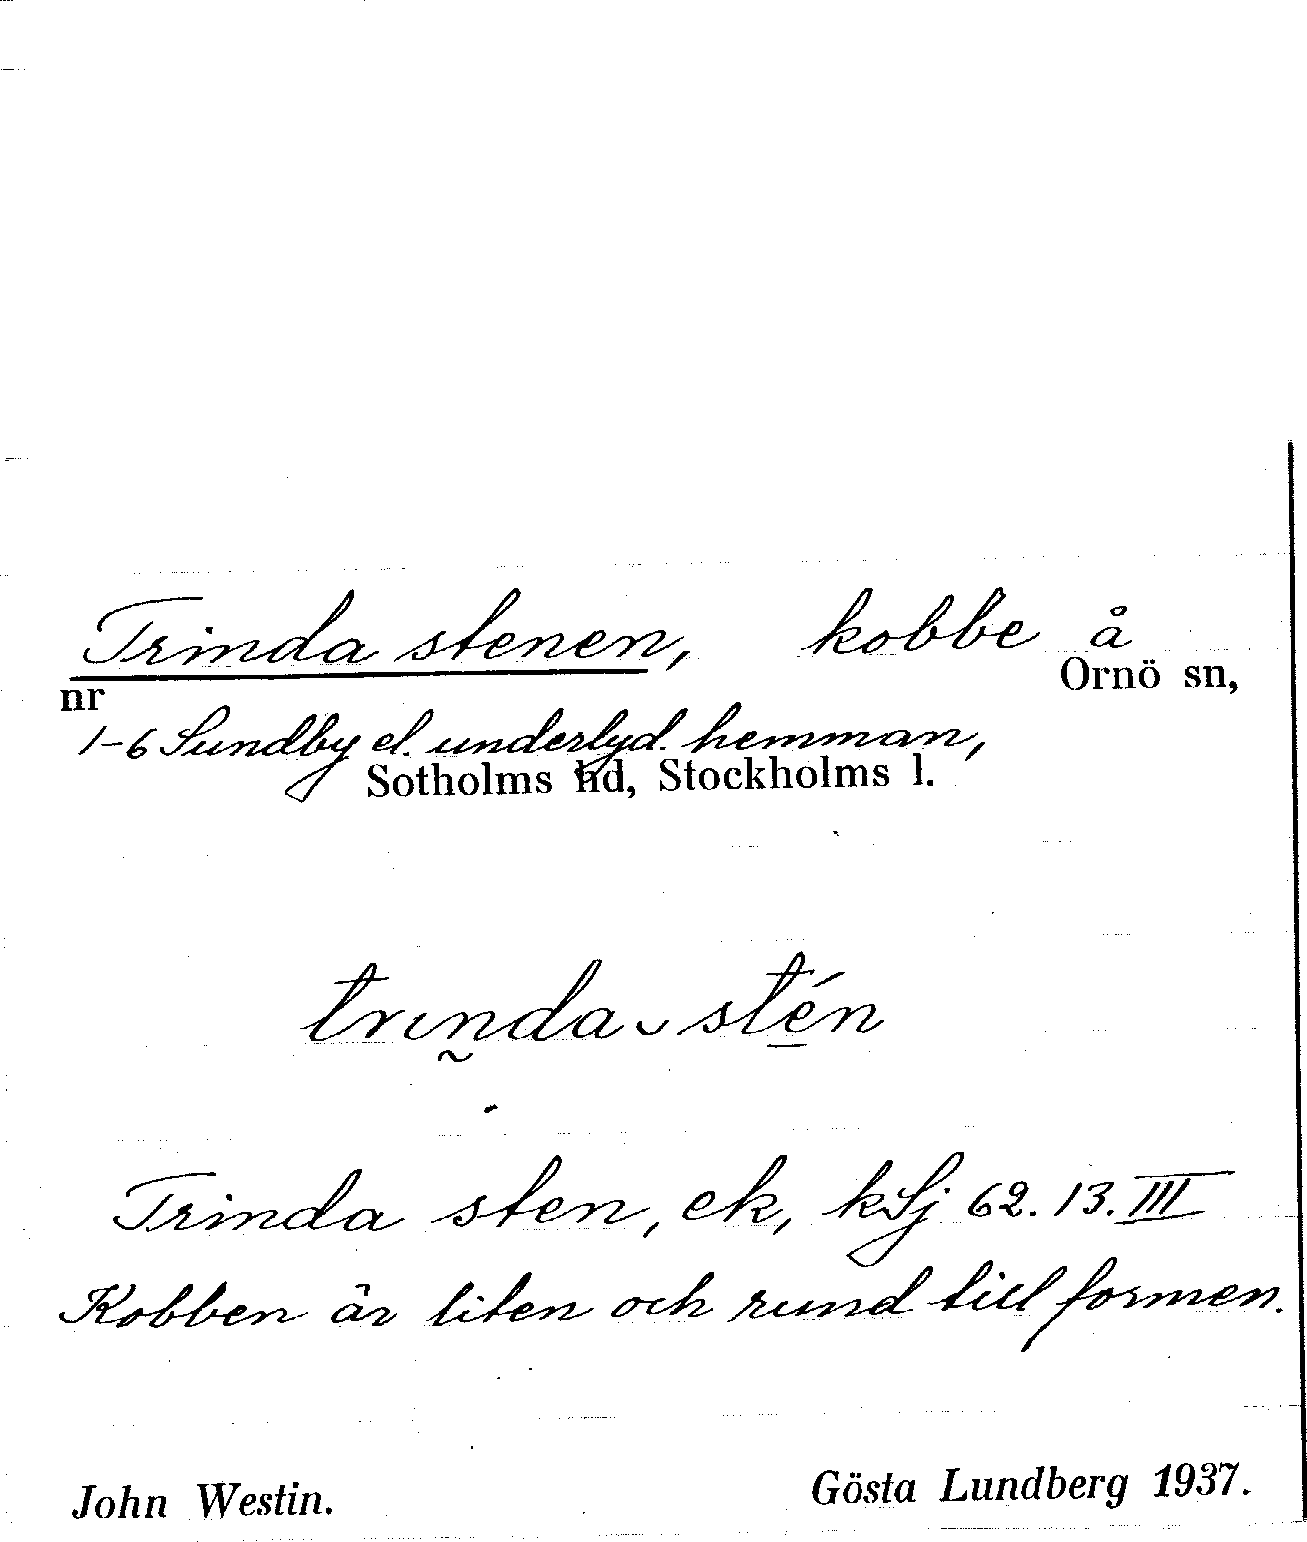 Trinda stenen, kobbe å
Ornö sn,
nr
1-6 Sundby el. underlyd. hemman,
Sotholms hd, Stockholms l.
trın̰da ̮ sté̲n
Trinda sten, ek, kSj 62. 13. III
Kobben är liten och rund till formen.
John Westin. Gösta Lundberg 1937.